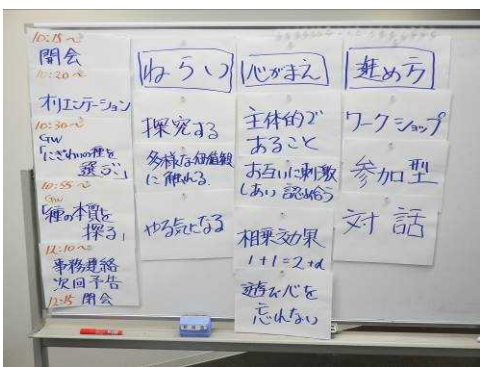 10:15~
開会
10:20~
オリエンテーション
10:30~
GW
「にぎわいの種を
選ぶ」
10:55~
GW
「種の本質を
探る」
12:10~
事務連絡
次回予告
12:15 閉会
ねらい
探究する
多様な価値観
に触れる
やる気になる
心がまえ
主体的で
あること
お互いに刺激
しあい 認め合う
相乗効果
1+1=2+α
遊び心を
忘れない
進め方
ワークショップ
参加型
対話